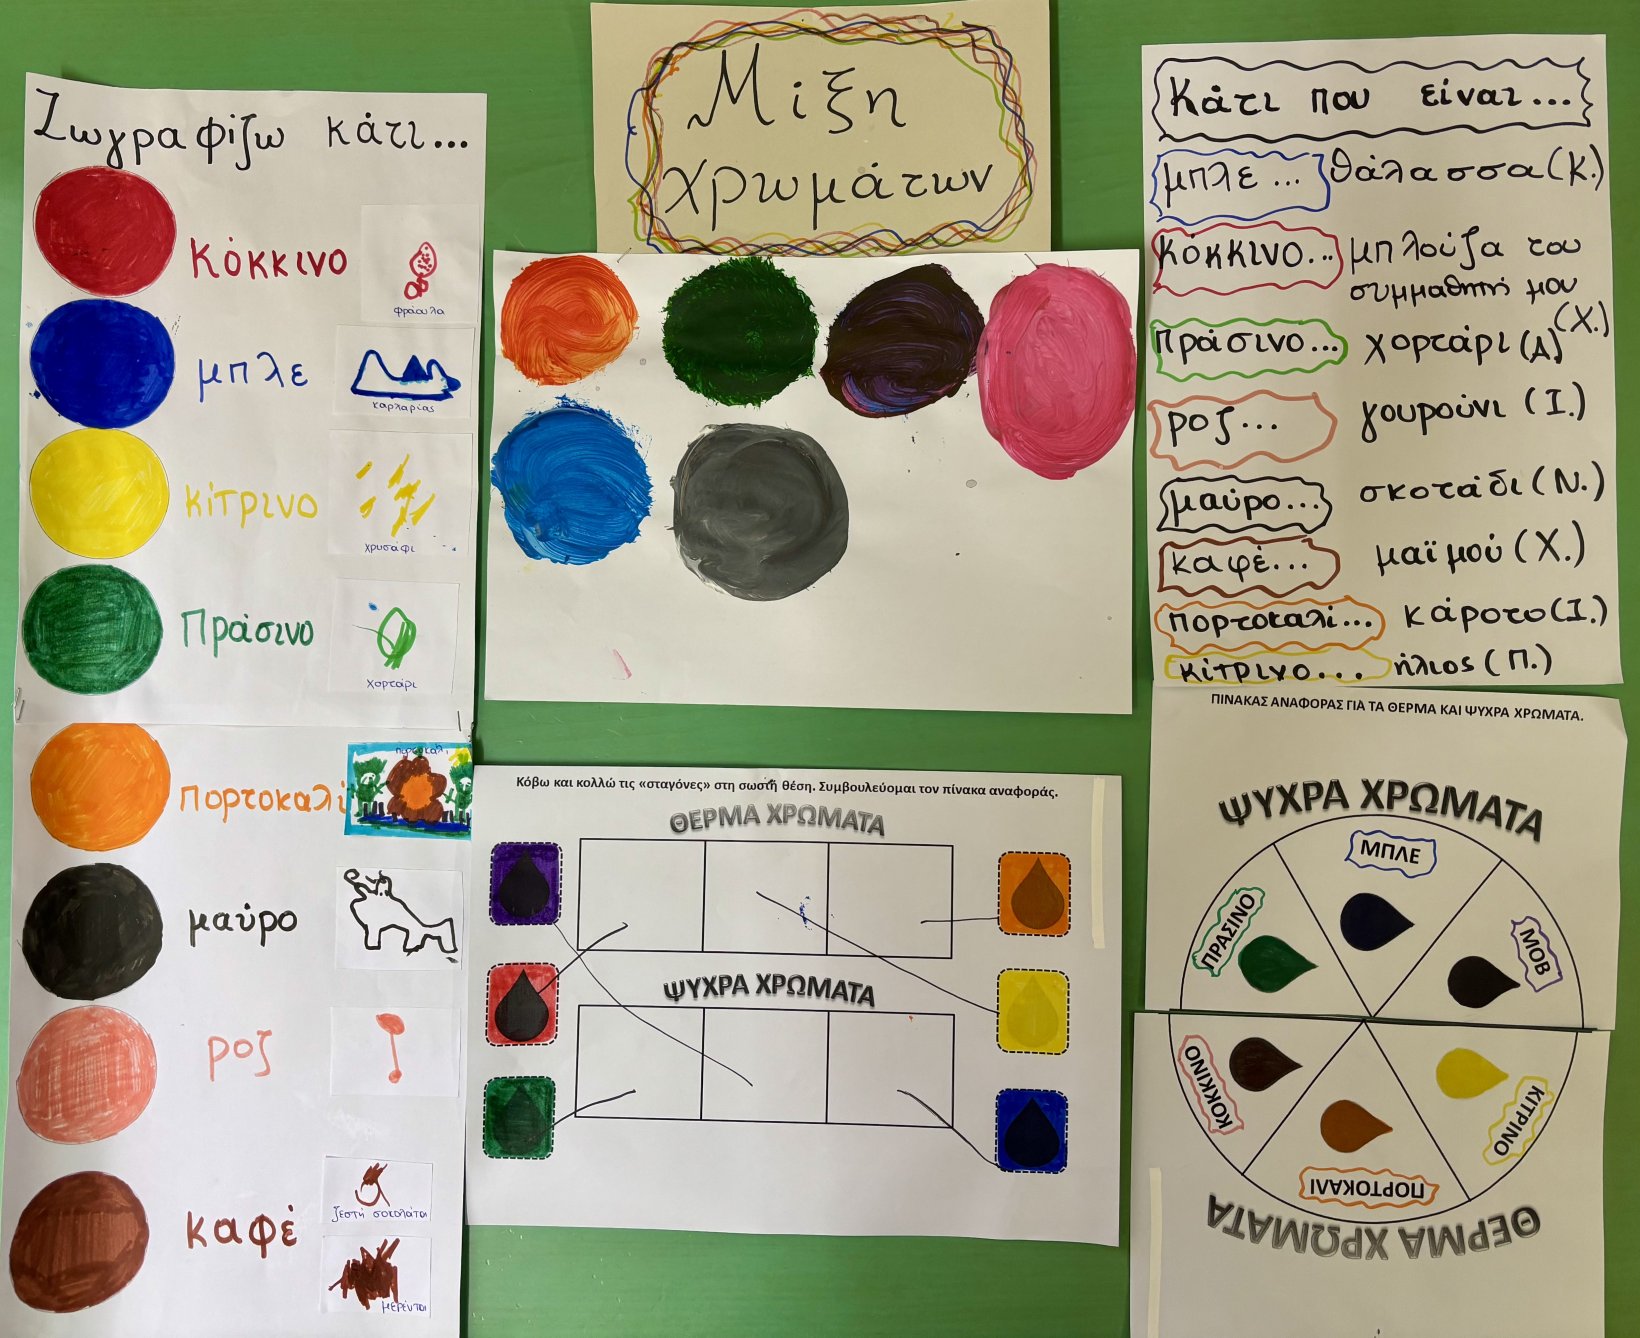 Ζωγραφίζω κάτι...
κόκκινο
φράουλα
μπλε
καρχαρίας
κίτρινο
χρυσάφι
Πράσινο
χορτάρι
πορτοκαλί
πορτοκαλί
μαύρο
ροζ
καφέ
ζεστή σοκολάτα
μερέντα
Μίξη
χρωμάτων
Κάτι που είναι...
μπλε... θάλασσα (Κ.)
κόκκινο... μπλούζα του
συμμαθητή μου
(Χ.)
πράσινο... χορτάρι (Α)
ροζ... γουρούνι (Ι.)
μαύρο... σκοτάδι (Ν.)
καφέ... μαϊμού (Χ.)
πορτοκαλί... κάροτο (Ι.)
κίτρινο... ήλιος (Π.)
Κόβω και κολλώ τις «σταγόνες» στη σωστή θέση. Συμβουλεύομαι τον πίνακα αναφοράς.
ΘΕΡΜΑ ΧΡΩΜΑΤΑ
ΨΥΧΡΑ ΧΡΩΜΑΤΑ
ΠΙΝΑΚΑΣ ΑΝΑΦΟΡΑΣ ΓΙΑ ΤΑ ΘΕΡΜΑ ΚΑΙ ΨΥΧΡΑ ΧΡΩΜΑΤΑ.
ΨΥΧΡΑ ΧΡΩΜΑΤΑ
ΠΡΑΣΙΝΟ
ΜΠΛΕ
ΜΟΒ
ΚΟΚΚΙΝΟ
ΠΟΡΤΟΚΑΛΙ
ΚΙΤΡΙΝΟ
ΘΕΡΜΑ ΧΡΩΜΑΤΑ